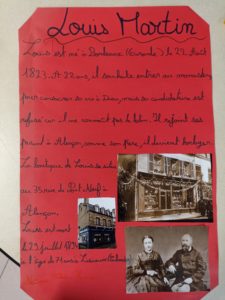 Louis Martin
Louis est né à Bordeaux (Gironde) le 22 Août
1823. A 22 ans, il souhaite entrer au monastère
pour consacrer sa vie à Dieu, mais sa candidature est
refusé car il ne connait pas le latin. Il rejoint ses
parents à Alençon, comme son père, il devient horloger.
La boutique de Louis se situe
au 35 rue du Pont-Neuf à
Alençon.
Louis est mort
le 29 juillet 1894
à l'âge de 71 ans à